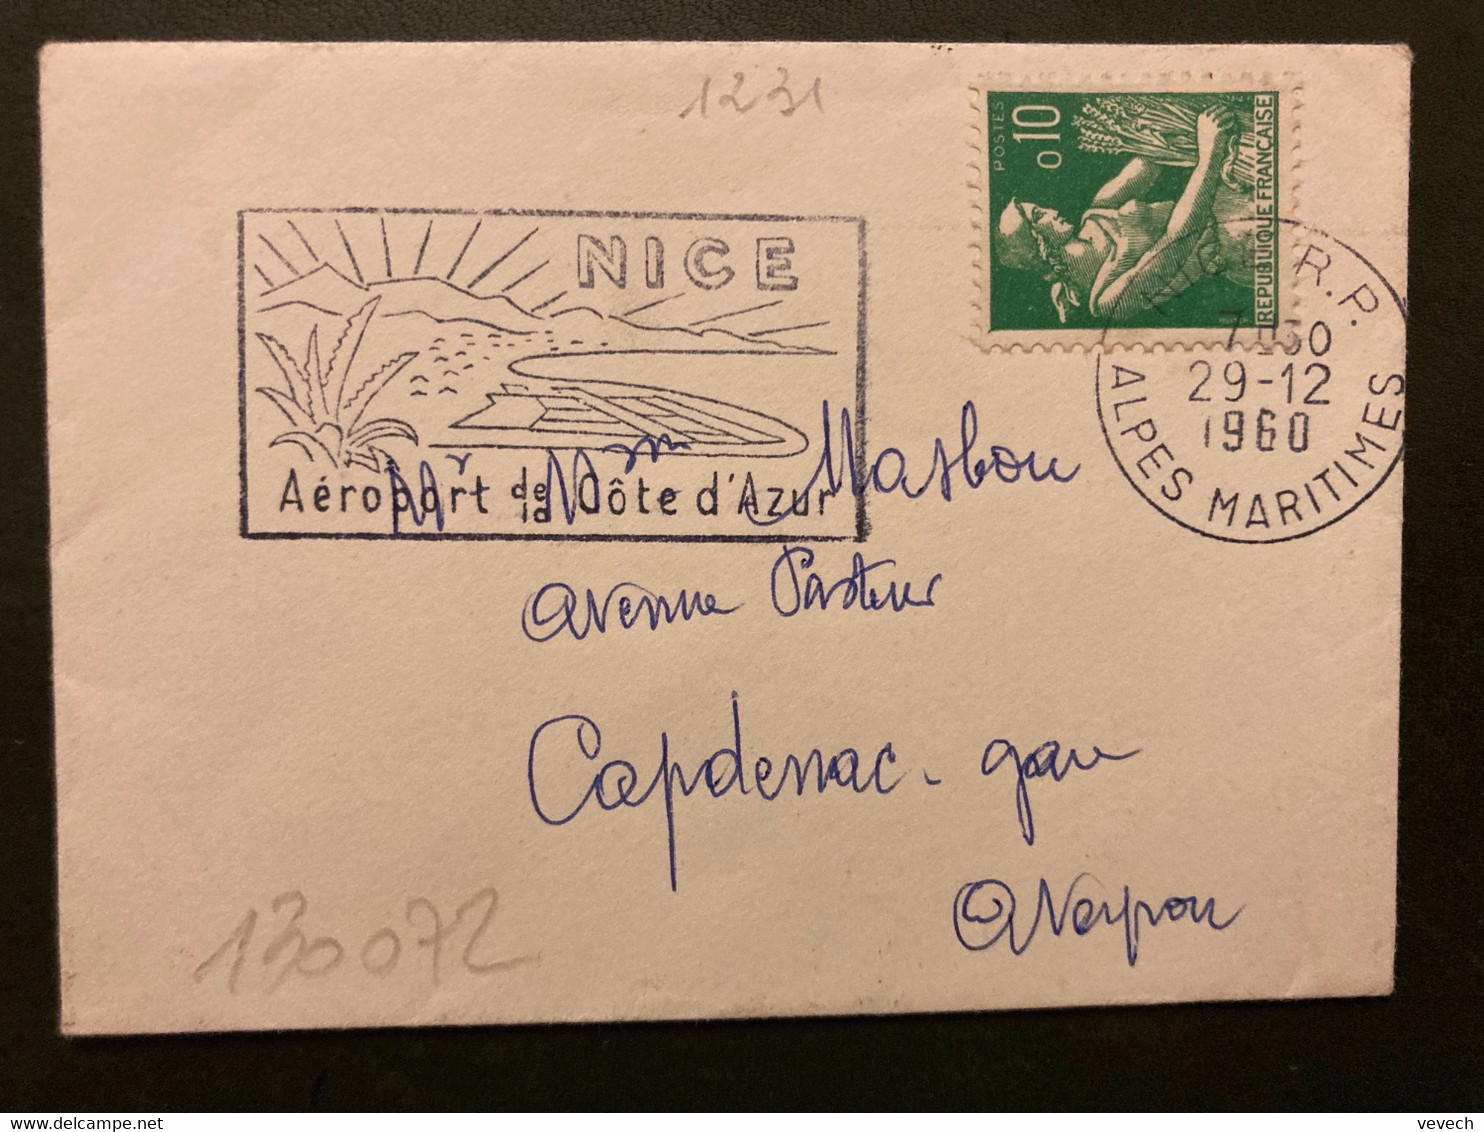 1231
POSTES
0,10
REPUBLIQUE FRANÇAISE
NICE R.P.
7-30
29-12
1960
ALPES MARITIMES
NICE
Aéroport de la Côte d'Azur
Mr Mme Masbou
avenue Pasteur
Capdenac-gare
Aveyron
130072
vevech